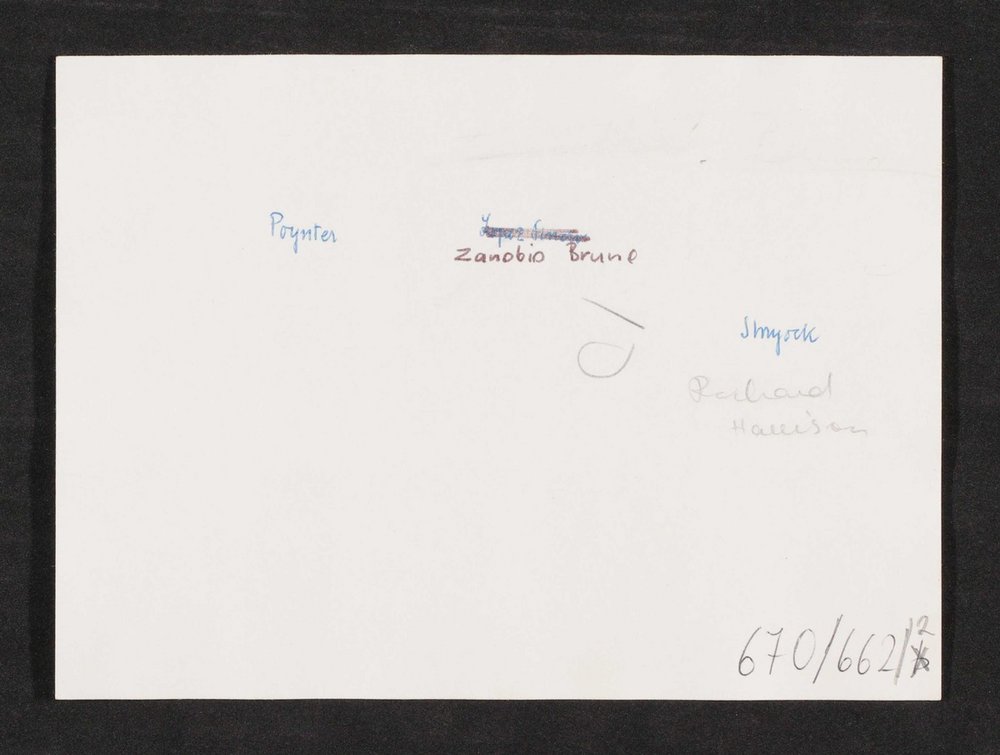 Poynter
Zanobio Brune
Shryock
Richard
Harrison
670/662/2